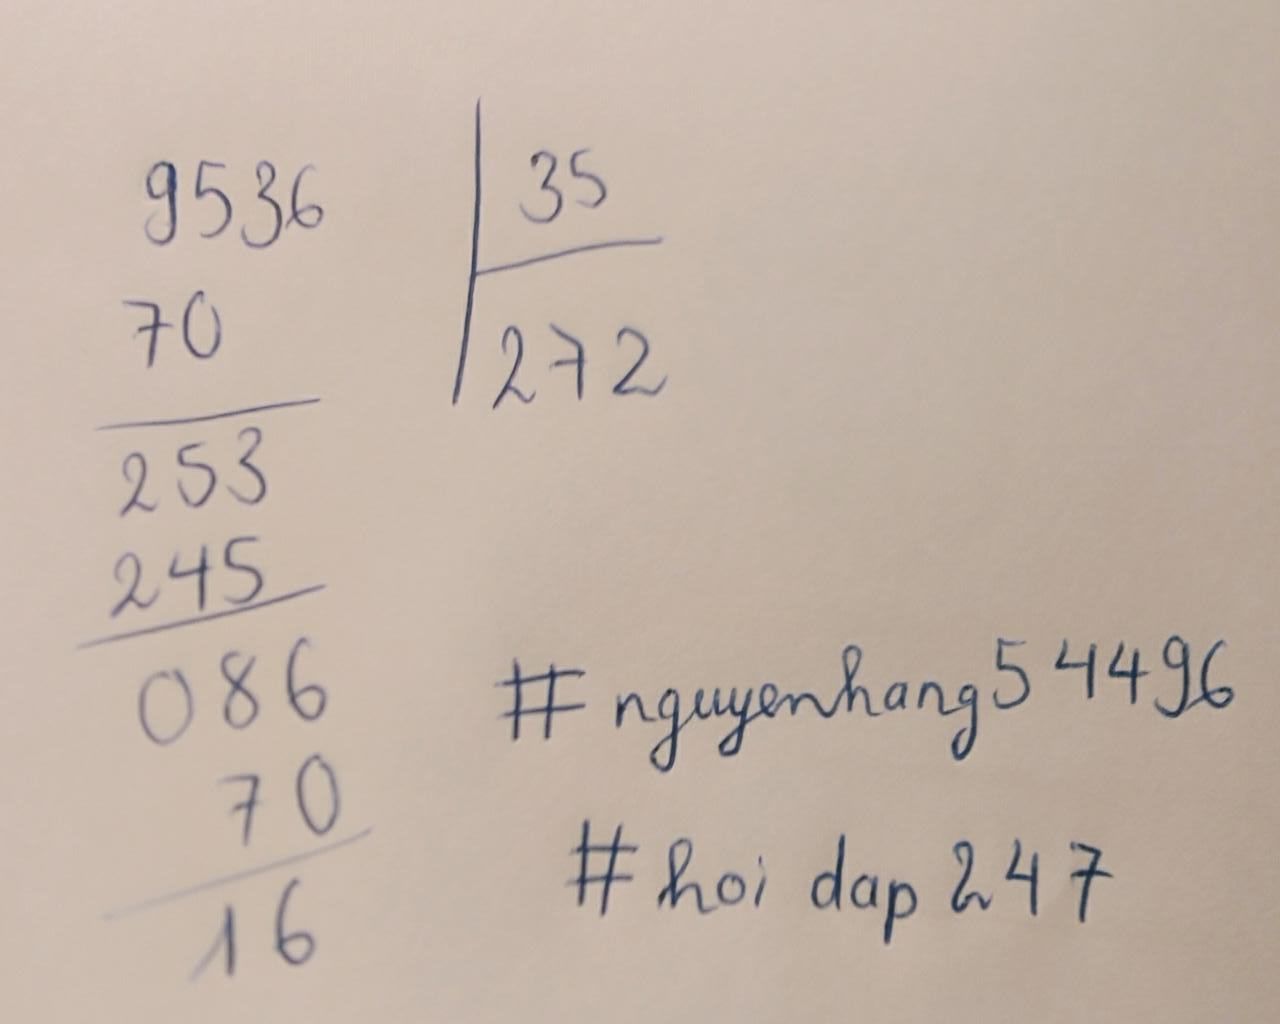 9536 35
70 272
253
245
086
70
16
#nguyenhang54496
#hoi dap 247